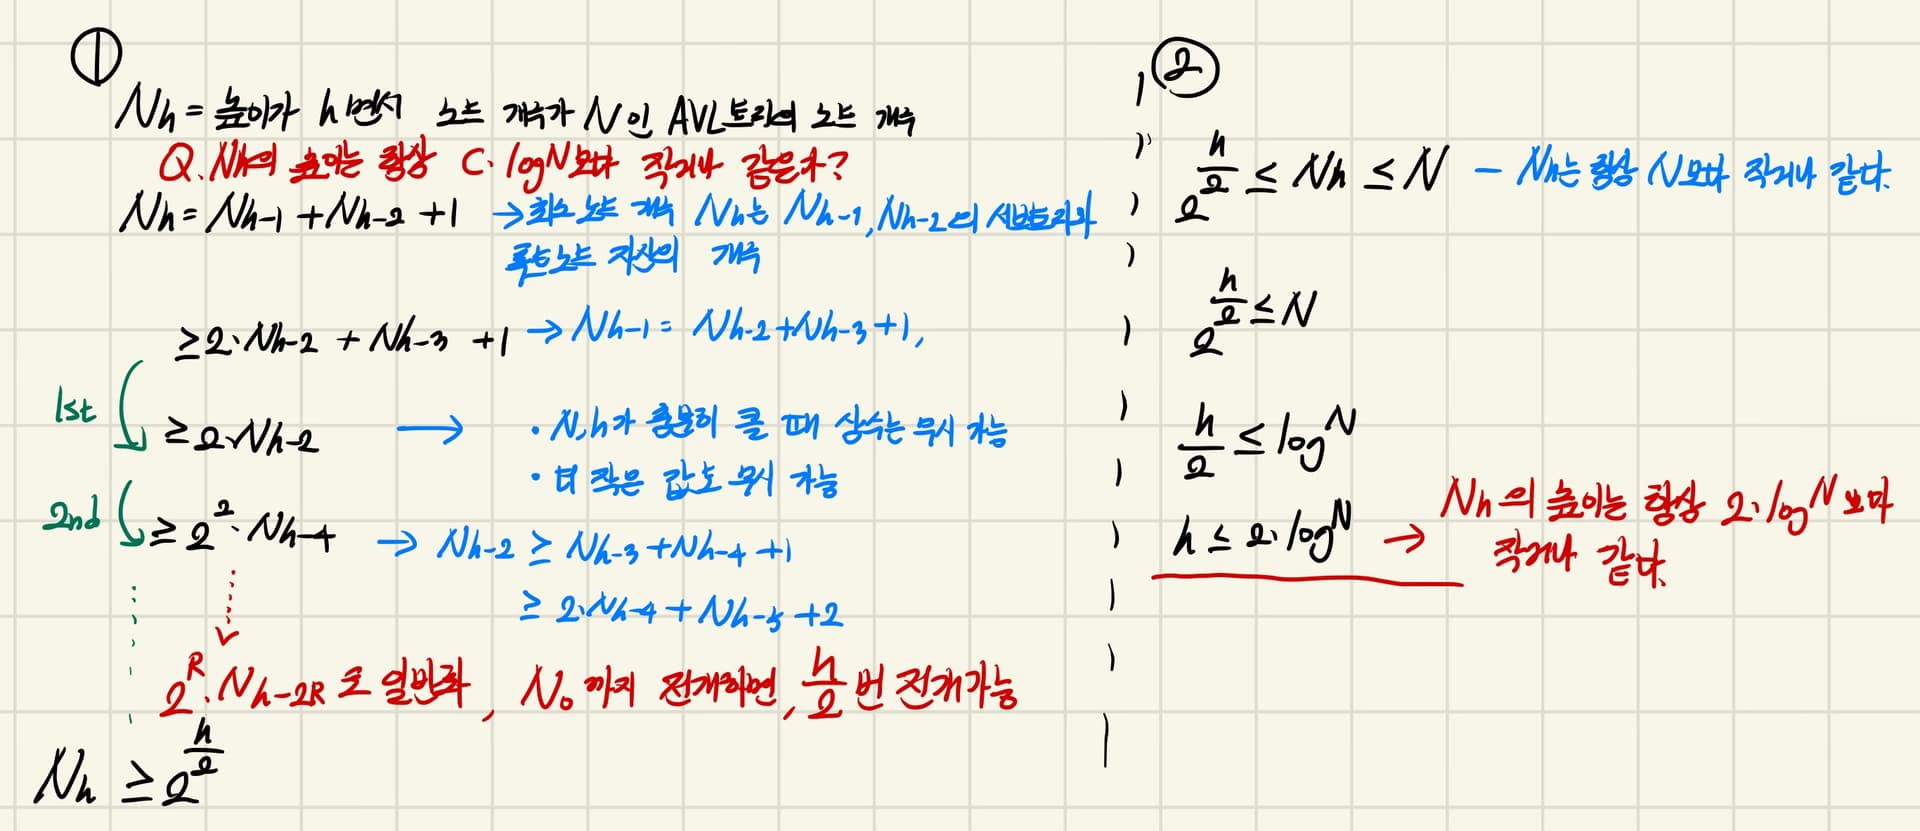 ①
Nh = 높이가 h면서 노드 개수가 N인 AVL트리의 노드 개수
Q. Nh의 높이는 항상 C·logN보다 작거나 같은가?
Nh = Nh-1 + Nh-2 + 1 → 최소 노드 개수 Nh는 Nh-1, Nh-2의 서브트리와
루트노드 자신의 개수
≥ 2·Nh-2 + Nh-3 + 1 → Nh-1 = Nh-2 + Nh-3 + 1,
1st ≥ 2·Nh-2 → · N,h가 충분히 클 때 상수는 무시 가능
· 더 작은 값도 무시 가능
2nd ≥ 2²·Nh-4 → Nh-2 ≥ Nh-3 + Nh-4 + 1
≥ 2·Nh-4 + Nh-5 + 2
2^R·Nh-2R로 일반화, N₀까지 전개하면, h/2번 전개가능
Nh ≥ 2^(h/2)
②
2^(h/2) ≤ Nh ≤ N - Nh는 항상 N보다 작거나 같다.
2^(h/2) ≤ N
h/2 ≤ log^N
h ≤ 2·log^N → Nh의 높이는 항상 2·log^N보다
작거나 같다.